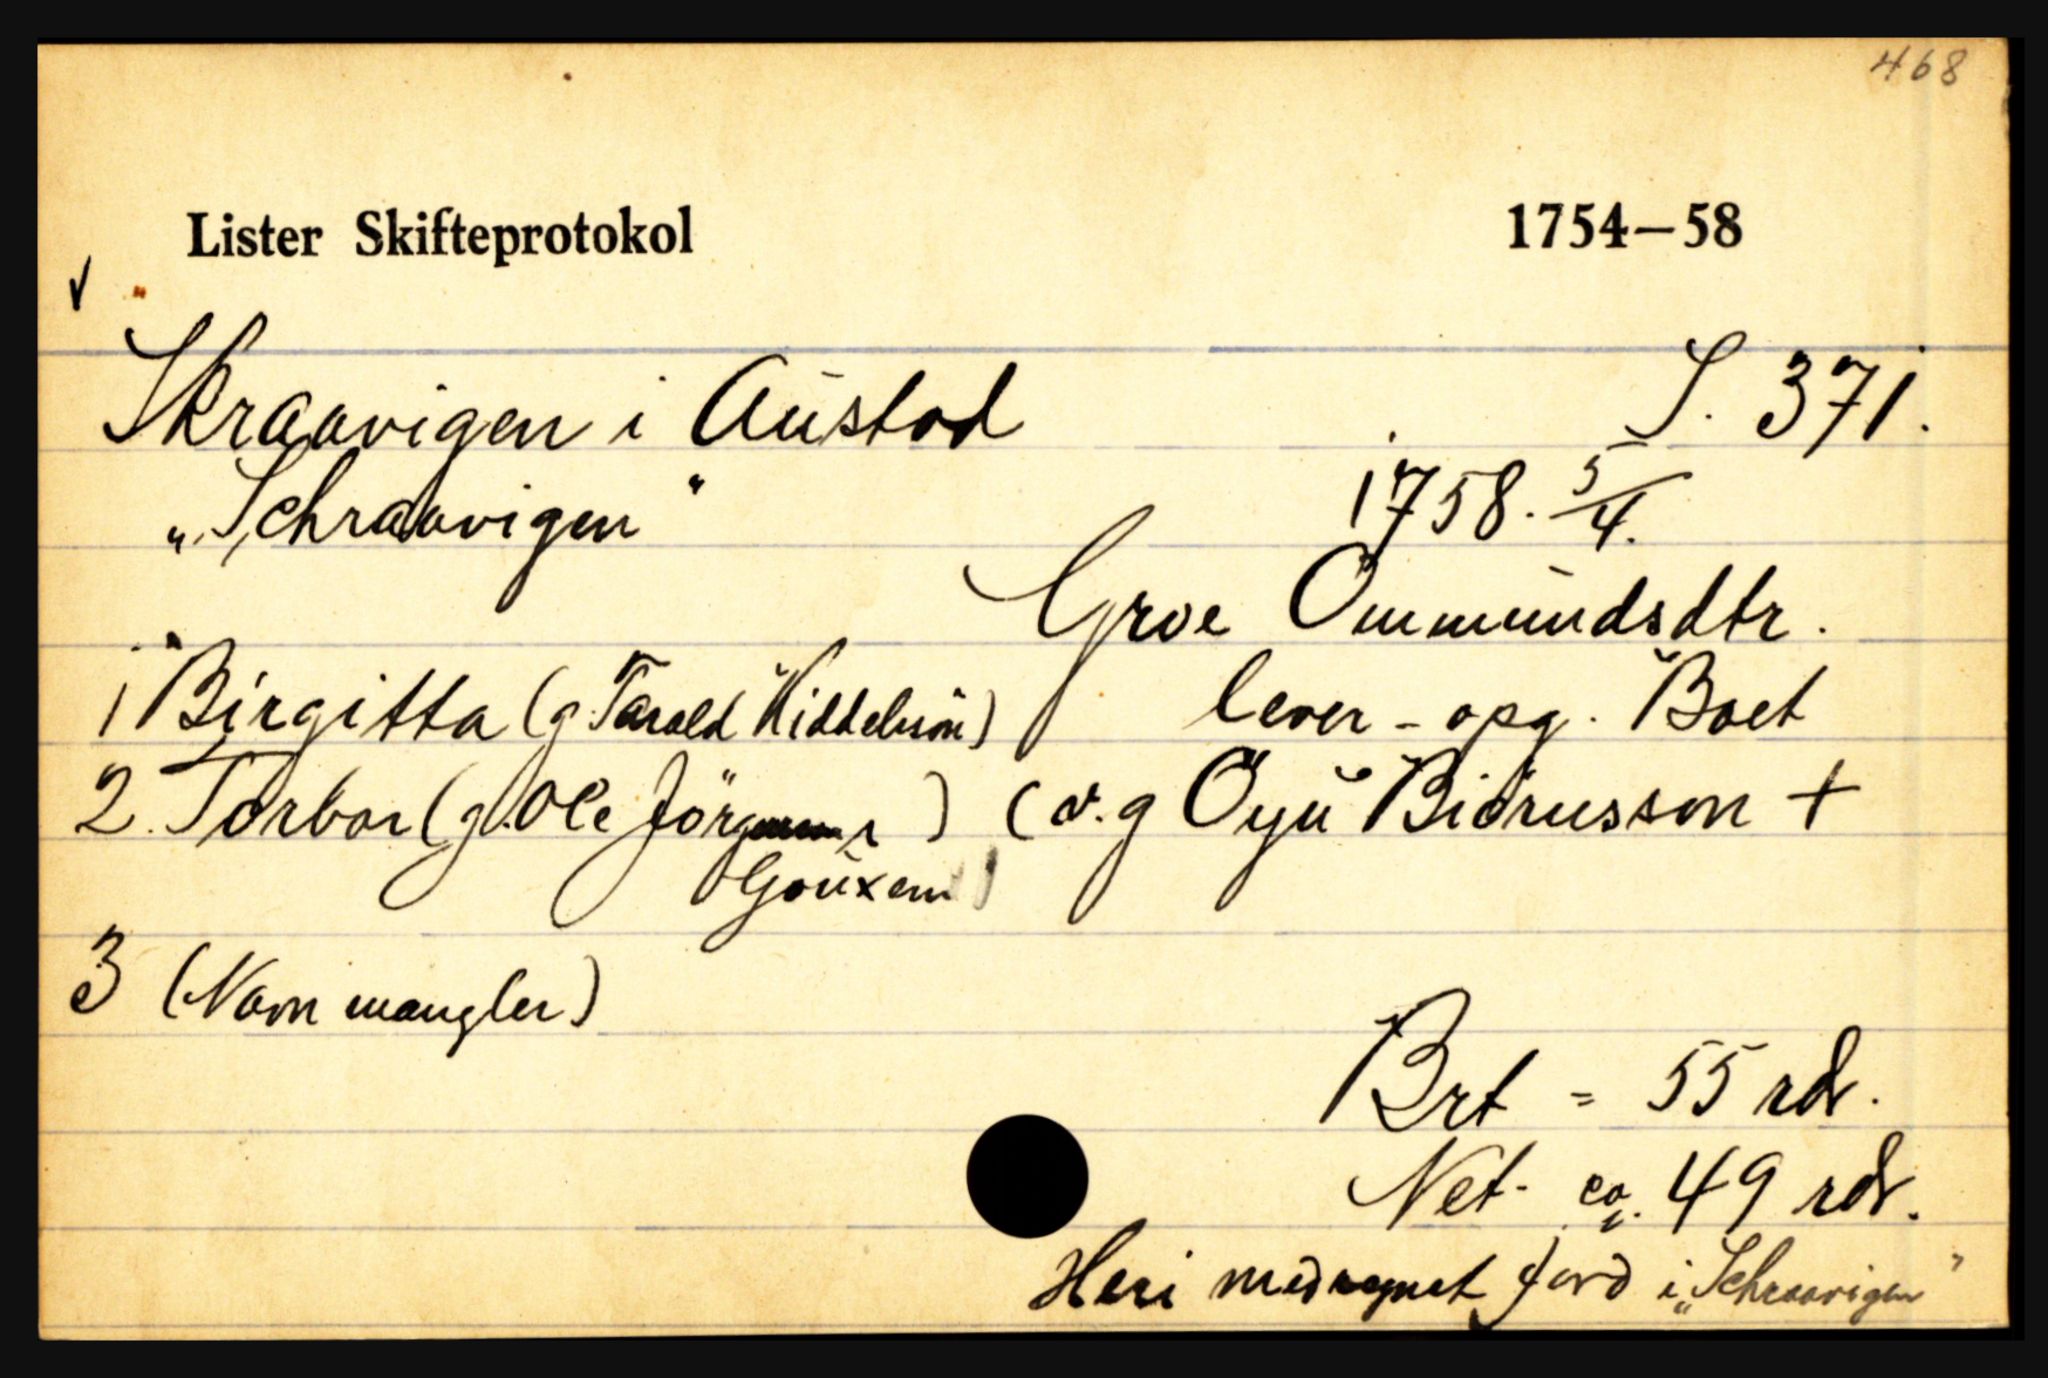 468
Lister Skifteprotokol 1754–58
Skraavigen i Austad S. 371.
„Schraavigen" 1758. 5/4.
Groe Ommundsdtr.
1 Birgitta (g. Tarald Kiddelsön) lever - opg. Boet
2. Torbor (g. Ole Jörg ) (v. g Öyü Biörnsson +
3 (Navn mangler)
Brt = 55 rdr.
Net. ca. 49 rdr.
Heri medregnet jord i „Schraavigen"